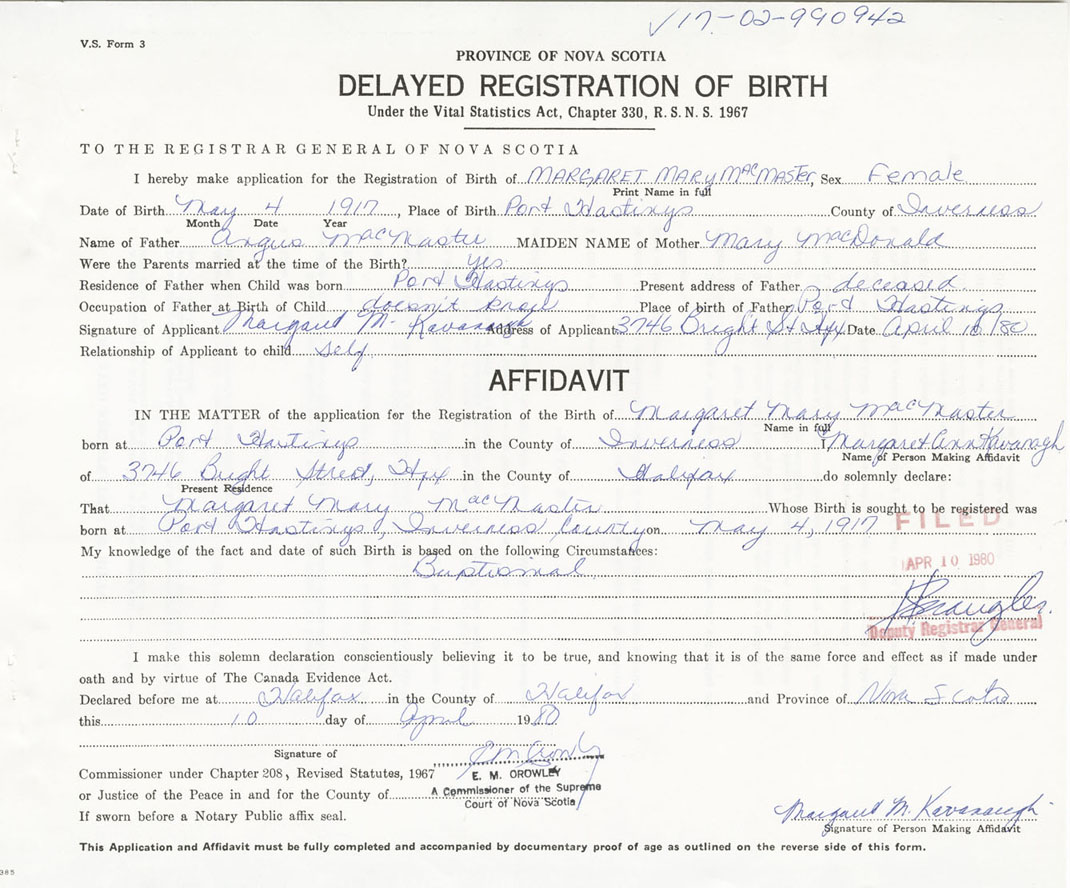 ✓17-02-990942
V.S. Form 3
PROVINCE OF NOVA SCOTIA
DELAYED REGISTRATION OF BIRTH
Under the Vital Statistics Act, Chapter 330, R.S.N.S. 1967
TO THE REGISTRAR GENERAL OF NOVA SCOTIA
I hereby make application for the Registration of Birth of MARGARET MARY MacMASTER, Sex Female
Print Name in full
Date of Birth May 4 1917, Place of Birth Port Hastings County of Inverness
Month Date Year
Name of Father Angus MacMaster MAIDEN NAME of Mother Mary MacDonald
Were the Parents married at the time of the Birth? yes
Residence of Father when Child was born Port Hastings Present address of Father deceased
Occupation of Father at Birth of Child doesn't know Place of birth of Father Port Hastings
Signature of Applicant Margaret M. Kavanaugh Address of Applicant 3746 Bright St Hfx Date April 10/80
Relationship of Applicant to child self
AFFIDAVIT
IN THE MATTER of the application for the Registration of the Birth of Margaret Mary MacMaster
Name in full
born at Port Hastings in the County of Inverness I Margaret Ann Kavanagh
Name of Person Making Affidavit
of 3746 Bright Street, Hfx in the County of Halifax do solemnly declare:
Present Residence
That Margaret Mary MacMaster Whose Birth is sought to be registered was
born at Port Hastings, Inverness County on May 4, 1917
FILED
My knowledge of the fact and date of such Birth is based on the following Circumstances:
Baptismal
APR 10 1980
Deputy Registrar General
I make this solemn declaration conscientiously believing it to be true, and knowing that it is of the same force and effect as if made under
oath and by virtue of The Canada Evidence Act.
Declared before me at Halifax in the County of Halifax and Province of Nova Scotia
this 10 day of April 1980
Signature of
Commissioner under Chapter 208, Revised Statutes, 1967
E. M. CROWLEY
or Justice of the Peace in and for the County of
A Commissioner of the Supreme
Court of Nova Scotia
If sworn before a Notary Public affix seal.
Margaret M. Kavanaugh
Signature of Person Making Affidavit
This Application and Affidavit must be fully completed and accompanied by documentary proof of age as outlined on the reverse side of this form.
385